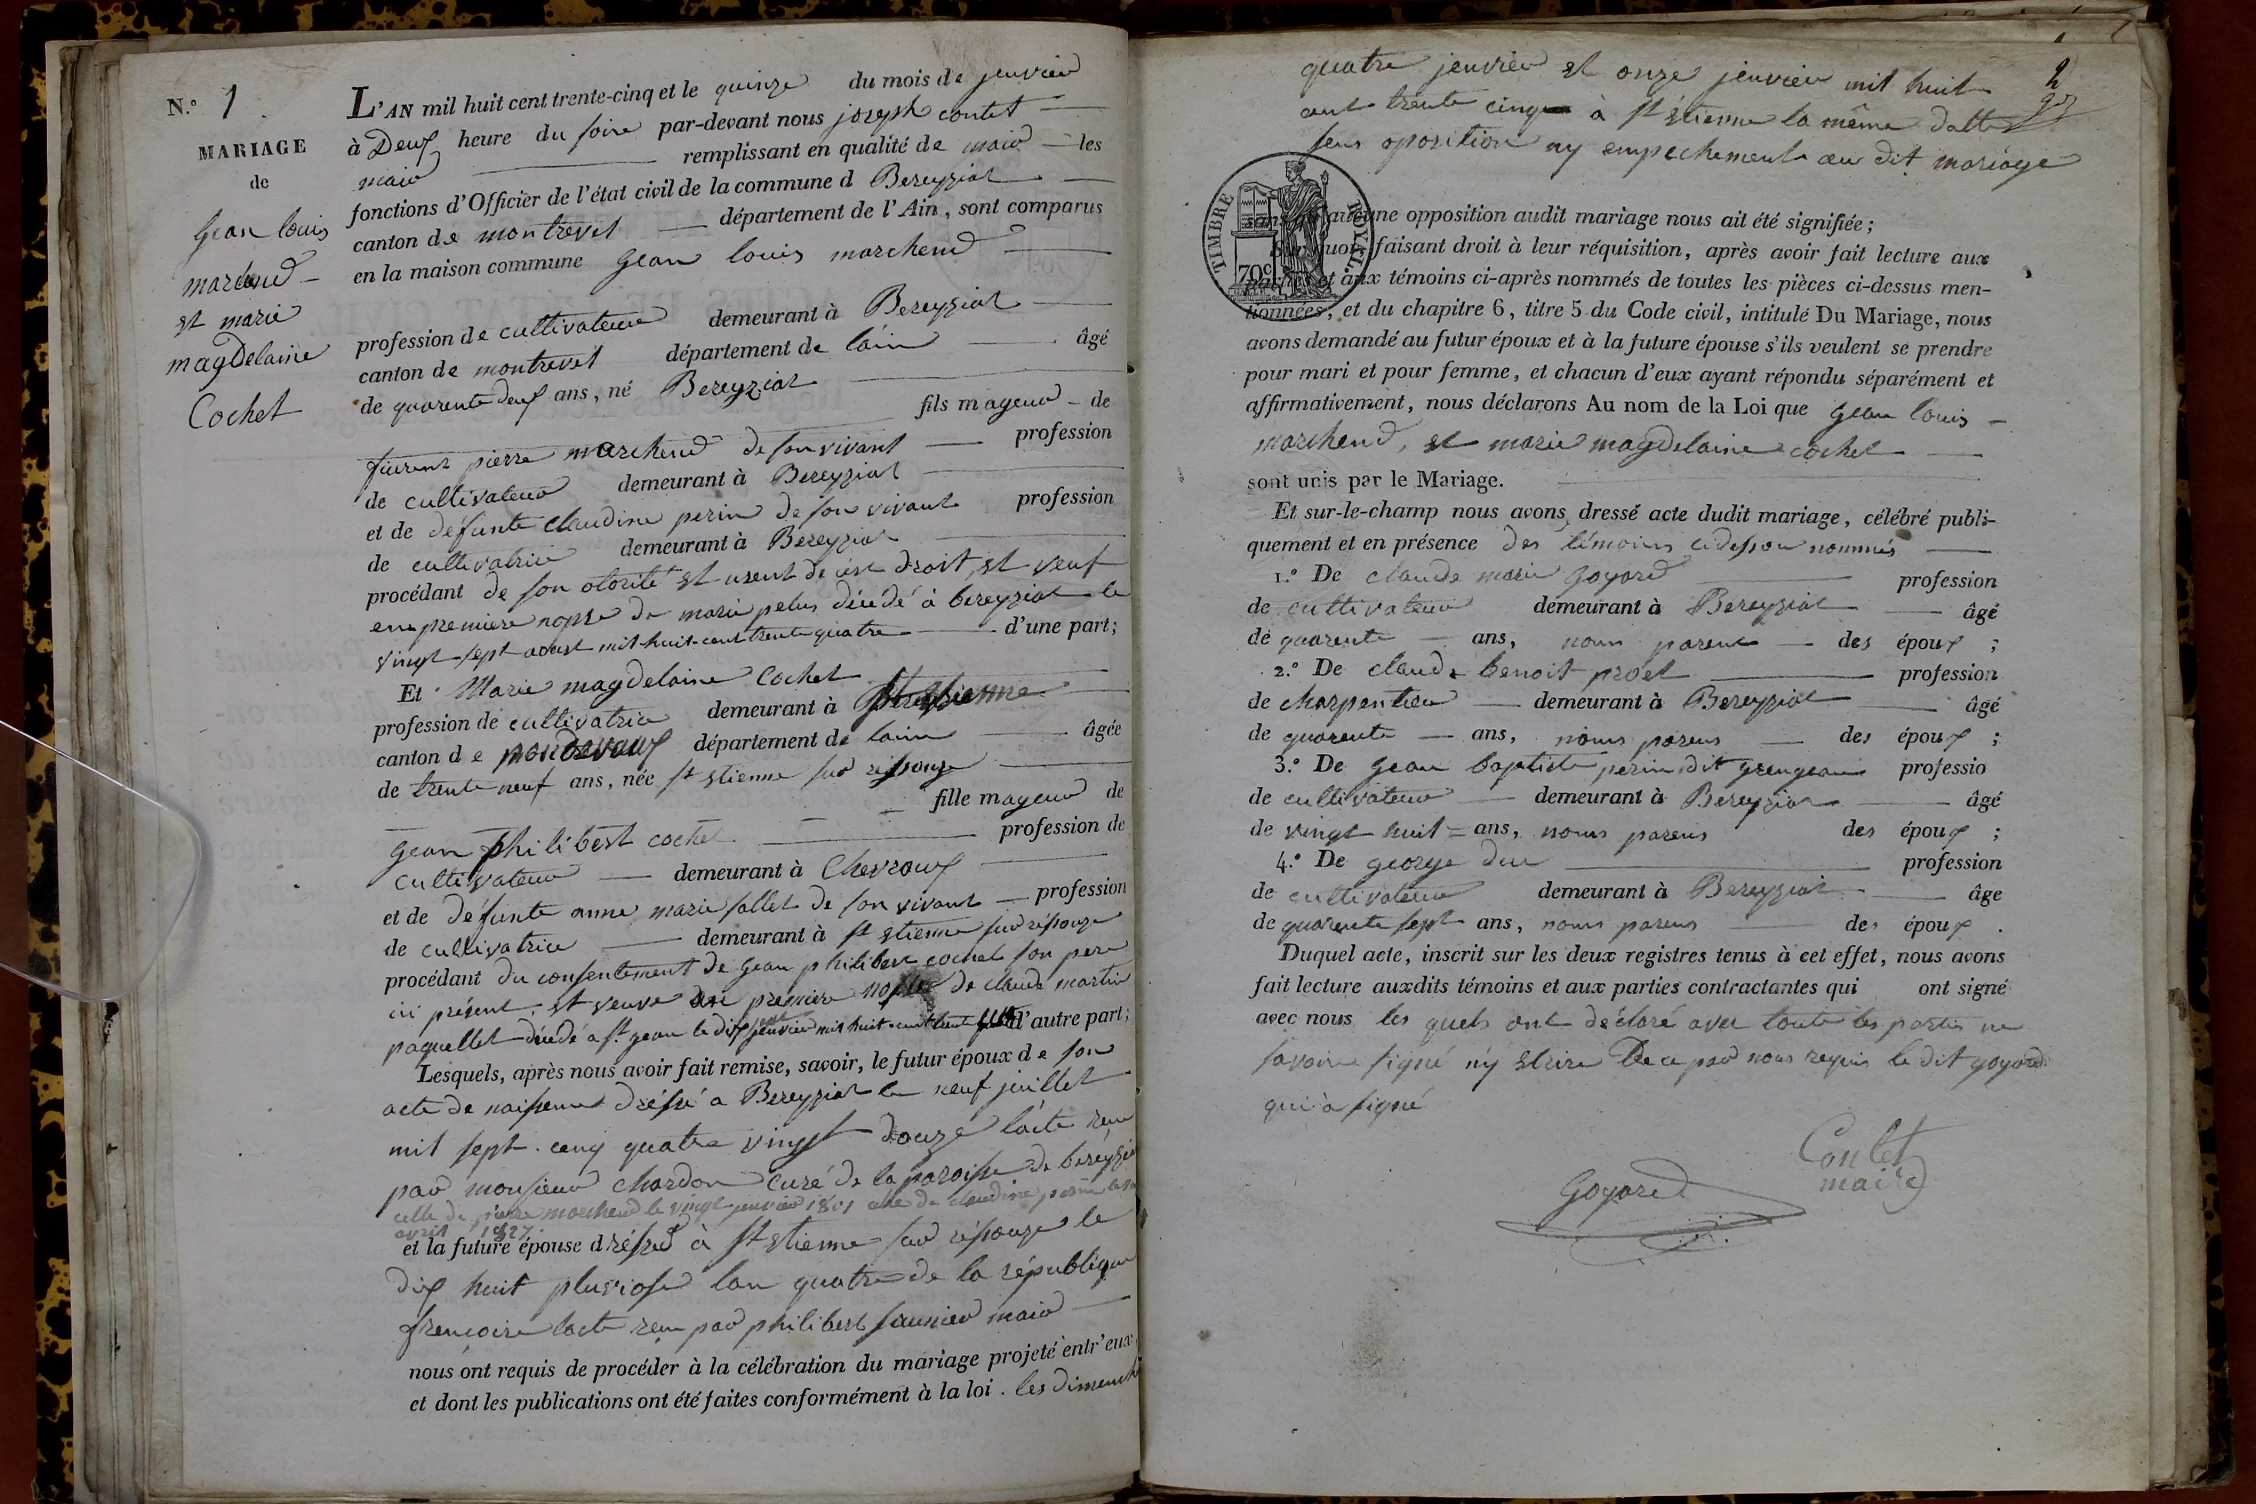 N.º 1
MARIAGE
de
Gean louis
marchend
et marie
magdelaine
Cochet
L'AN mil huit cent trente-cinq et le quinze du mois de jenvier
à Deux heure du soire par-devant nous joseph contet
maire remplissant en qualité de maire les
fonctions d'Officier de l'état civil de la commune d Bereyziat
canton de montrevel département de l'Ain, sont comparus
en la maison commune Gean louis marchend
profession de cultivateur demeurant à Bereyziat
canton de montrevel département de lain âgé
de quarente deux ans, né Bereyziat
fils mageur de
pierre marchend de son vivant profession
de cultivateur demeurant à Bereyziat
et de défunte claudine perin de son vivant profession
de cultivatrice demeurant à Bereyziat
procédant de son otorité et usent de droit, et veuf
en premiere nopse de marie pelus décedé à bereyziat le
vingt sept aoust mil huit cent trente quatre d'une part;
Et Marie magdelaine Cochet
profession de cultivatrice demeurant à st etienne
canton de pondevaux département de lain âgée
de trente neuf ans, née st etienne sur ressouze
fille mageur de
gean philibert cochet profession de
cultivateur demeurant à Chevroux
et de défunte anne marie sallet de son vivant profession
de cultivatrice demeurant à st etienne sur ressouze
procédant du consentement de gean philibert cochet son pere
ici présent, et veuve premiere nopse de claude martin
paquellet décedé a st gean le dix jenvier mil huit cent trente d'autre part;
Lesquels, après nous avoir fait remise, savoir, le futur époux de son
acte de naissence dréssé a Bereyziat le neuf juillet
mil sept cenq quatre vingt douze lacte reçu
par monsieur chardon curé de la paroisse de bereyziat
celle de pierre marchend le vingt jenvier 1801 celle de claudine perin
avril 1827
et la future épouse dréssé à st etienne sur réssouze le
dix huit pluviose lan quatre de la république
françoise lacte reçu par philibert saunier maire
nous ont requis de procéder à la célébration du mariage projeté entr'eux,
et dont les publications ont été faites conformément à la loi. les dimenche
2
quatre jenvier et onze jenvier mil huit
cent trente cinq à st etienne la même datte
sens oposition ny empechement au dit mariage
TIMBRE ROYAL
70c
sans qu'aucune opposition audit mariage nous ait été signifiée;
Sur quoi, faisant droit à leur réquisition, après avoir fait lecture aux
parties et aux témoins ci-après nommés de toutes les pièces ci-dessus men-
tionnées, et du chapitre 6, titre 5 du Code civil, intitulé Du Mariage, nous
avons demandé au futur époux et à la future épouse s'ils veulent se prendre
pour mari et pour femme, et chacun d'eux ayant répondu séparément et
affirmativement, nous déclarons Au nom de la Loi que gean louis
marchend, et marie magdelaine cochet
sont unis par le Mariage.
Et sur-le-champ nous avons dressé acte dudit mariage, célébré publi-
quement et en présence des témoins cidessou nommés
1.º De claude marie goyard profession
de cultivateur demeurant à Bereyziat âgé
de quarente ans, nom parent des époux ;
2.º De claude benoit profession
de charpentier demeurant à Bereyziat âgé
de quarente ans, nom parens des époux ;
3.º De gean baptiste perin dit grengean professio
de cultivateur demeurant à Bereyziat âgé
de vingt huit ans, nom parens des époux ;
4.º De george duc profession
de cultivateur demeurant à Bereyziat âge
de quarente sept ans, nom parens des époux .
Duquel acte, inscrit sur les deux registres tenus à cet effet, nous avons
fait lecture auxdits témoins et aux parties contractantes qui ont signé
avec nous les quels ont déclaré avec toute les parties ne
savoire signé n'y ecrire De ce par nous requis le dit goyard
qui à signé
Contet
maire
Goyard